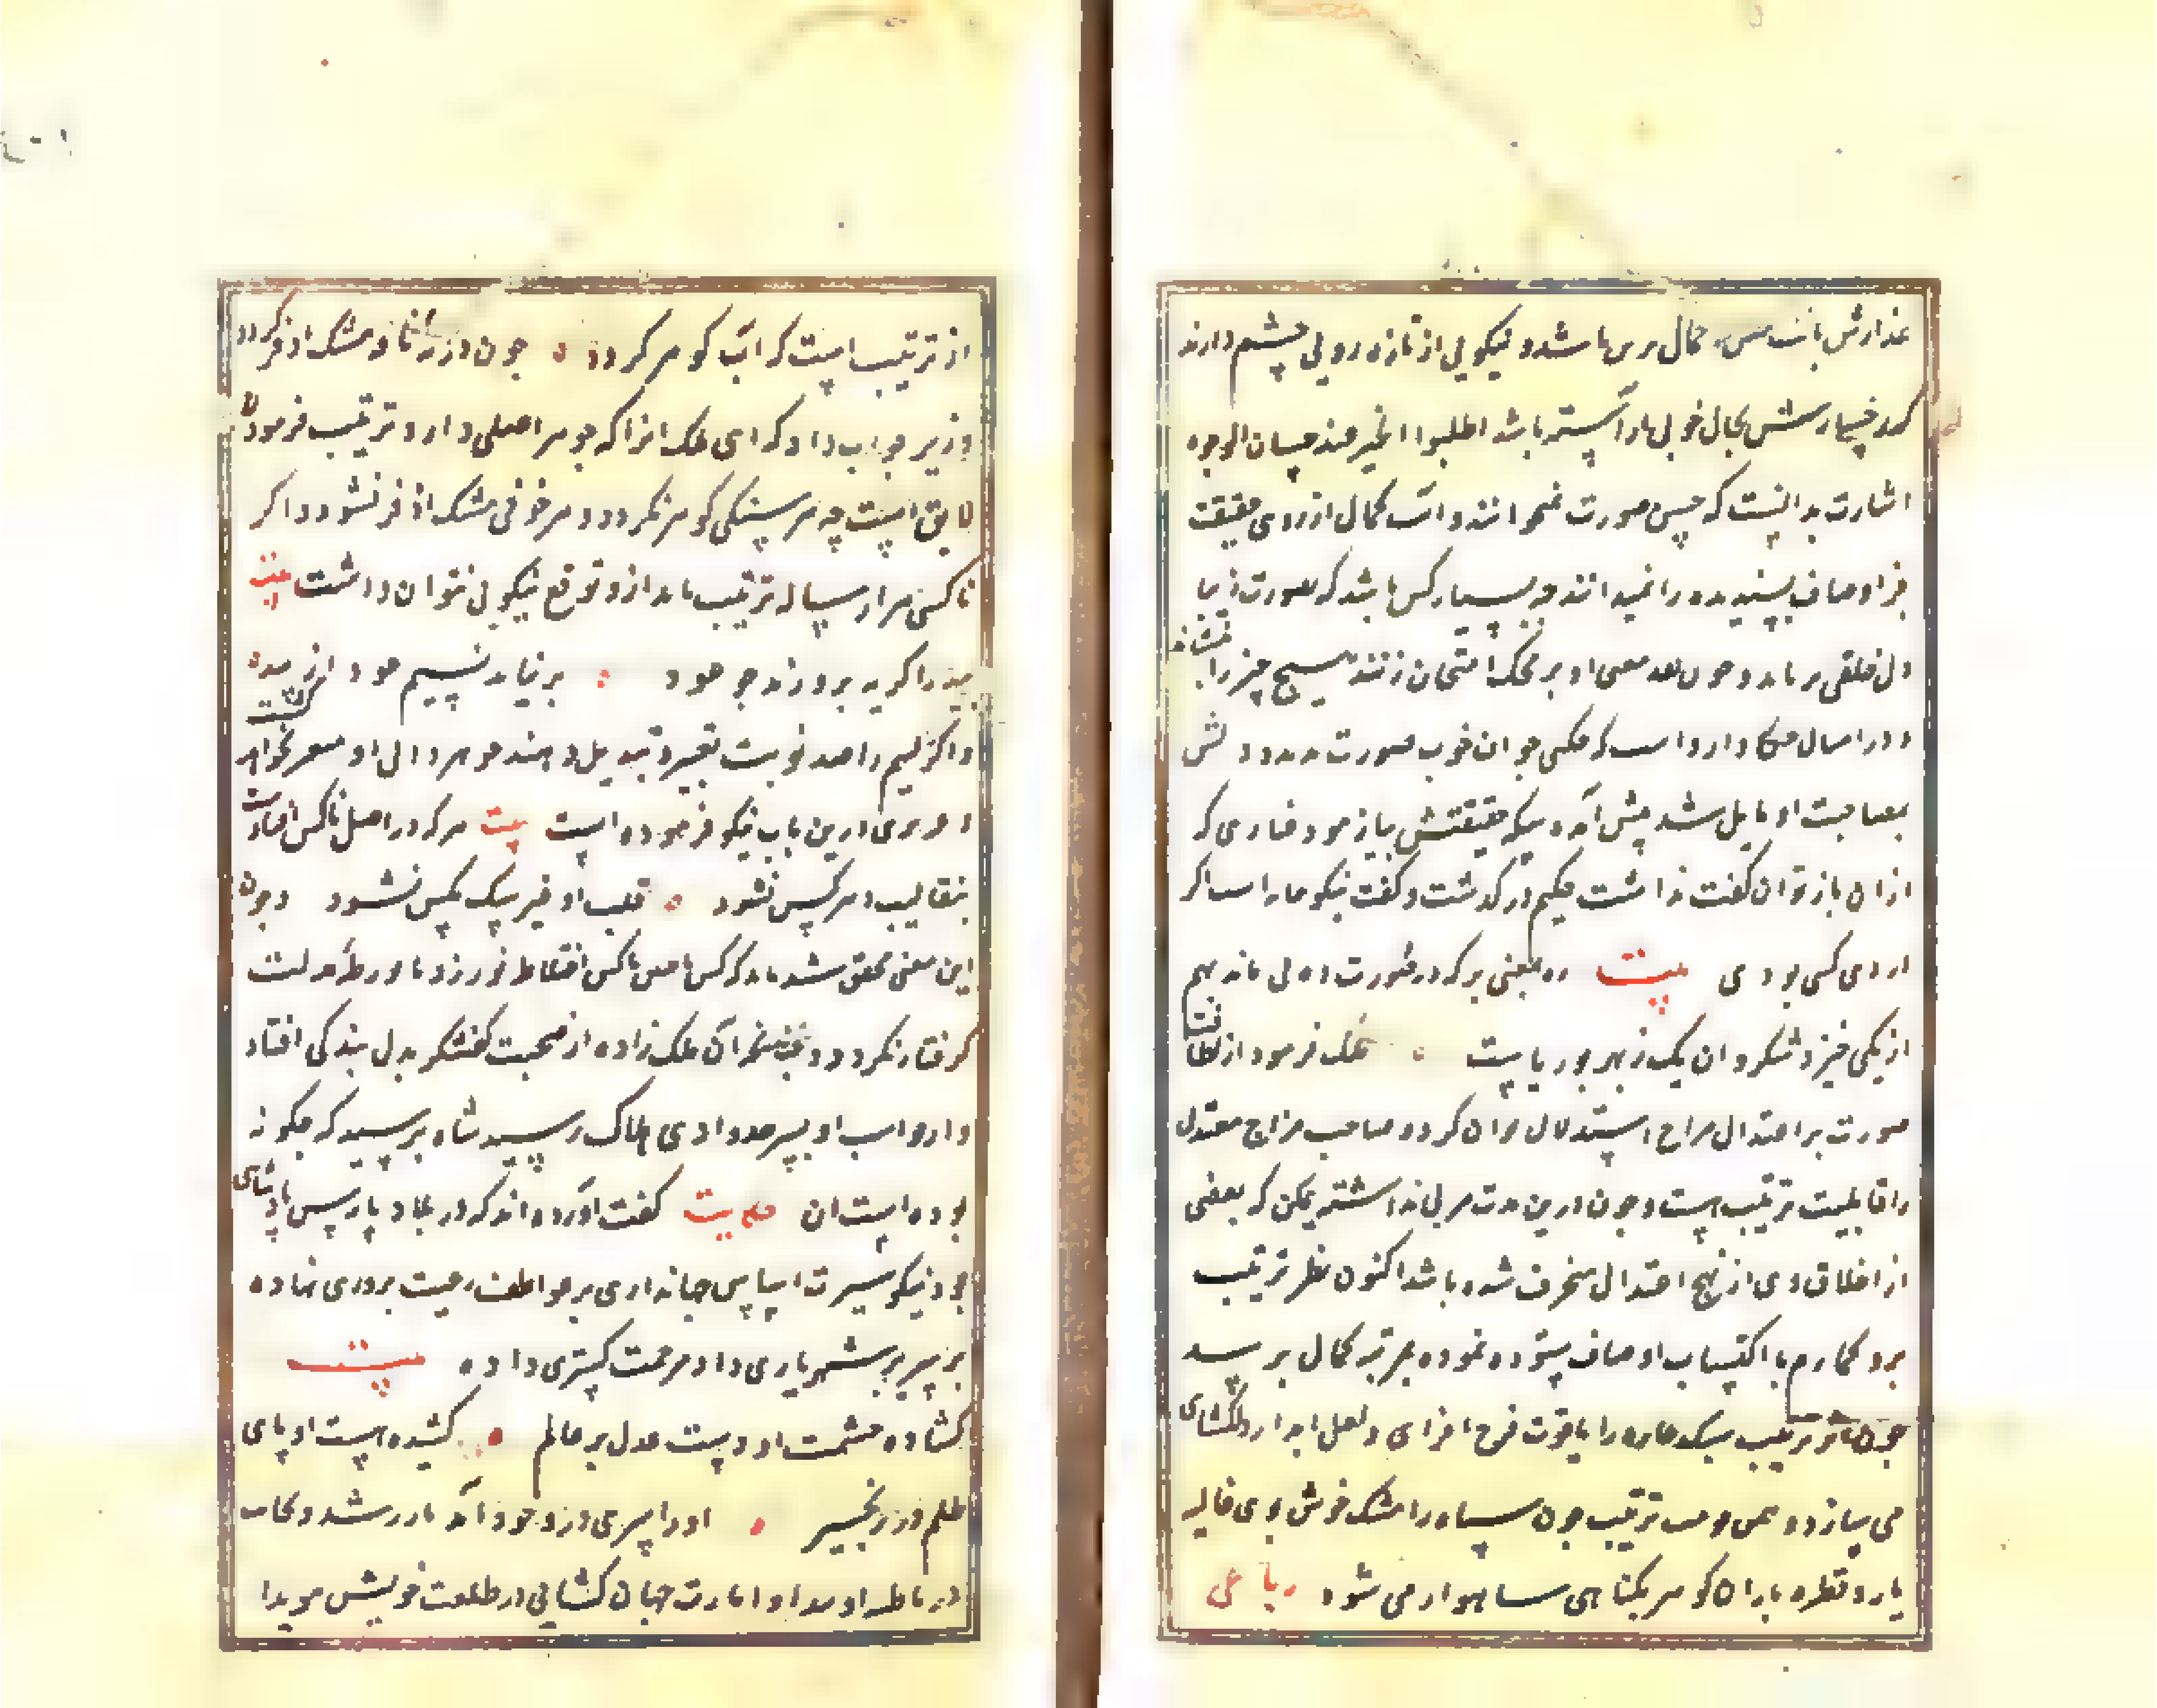 عذارش بانت حسن جمال برین باشد و نیکویی از تازه رویی چشم دارند
که رخسارش بجمال خوبی آراسته باشد اطلبوا الخیر عند حسان الوجوه
اشارت بدانست که حسن صورت نمیخوانند و آن کمال از روی حقیقت
جز اوصاف پسندیده را نمیدانند چه بسیار کس باشد که بصورت زیبا
دل خلقی برباید و چون نقد معنی او بر محک امتحان زنند هیچ چیز را نشاید
و در امثال حکما وارد است که حکیمی جوان خوب صورت دید و دلش
بمصاحبت او مایل شد پیش آمد و سکه حقیقتش بیازمود عیاری که
از ان باز توان گفت نداشت حکیم درگذشت و گفت نیکو خانه است اگر
در وی کسی بودی بیت ره بمعنی بر که در صورت دلی ماند بهم
از یکی خیزد شکر و ان یک ز بهر بوریاست ملک فرمود از لطافت
صورت بر اعتدال مزاج استدلال توان کرد و صاحب مزاج معتدل
را قابلیت تربیت هست و چون درین مدت مربی نداشته یمکن که بعضی
از اخلاق وی از نهج اعتدال منحرف شده باشد اکنون نظر تربیت
برو گمارم با اکتساب اوصاف ستوده نموده بمرتبه کمال برسد
چون تاثیر تربیت سنگ خاره را یاقوت فرح افزای و لعل ابدار دلگشای
می سازد و بیمن تربیت خون سیاه را مشک خوش بوی غالیه
بار و قطره باران گوهر یکتای شاهوار می شود رباعی
از تربیت است که آب گوهر گردد چون در ته نافه مشک اذفر گردد
وزیر جواب داد که ای ملک انرا که جوهر اصلی دارد تربیت فرمودن
لایق است چه هر سنگی گوهر نگردد و هر خونی مشک اذفر نشود و اگر
ناکسی هزار سال تربیت یابد ازو توقع نیکویی نتوان داشت بیت
بید را گر بپرورند چو عود برنیاید نسیم عود از بید
و اگر لئیم را صد نوبت تغییر و تبدیل دهند جوهر ذاتی او متغیر نخواهد گشت
و عزیزی درین باب نیکو فرموده است بیت هر که در اصل ناکس افتادست
بتقالیب دهر کس نشود قلب او غیر سک بکس نشود و چون
این معنی محقق شد باید که کس با هیچ ناکس اختلاط نورزد تا در ورطه مذلت
گرفتار نگردد همچنانکه آن ملک زاده از صحبت کفشگر بذل بندگی افتاد
و از واسب او بسر حد وادی هلاک رسید شاه پرسید که چگونه
بوده است ان حکایت گفت آورده اند که در بلاد پارس پادشاهی
بود نیکو سیرت اساس جهانداری بر عواطف رعیت پروری نهاده
بر سریر شهریاری داد مرحمت گستری داده بیت
گشاده حشمت او دست عدل بر عالم کشیده هیبت او پای
ظلم در زنجیر او را پسری در وجود آمد
در ناصیه او پیدا و امارت جهان گشایی در طلعت خویش هویدا